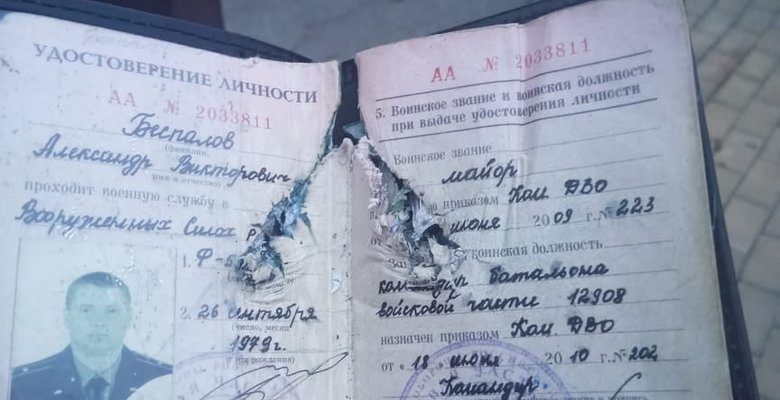 УДОСТОВЕРЕНИЕ ЛИЧНОСТИ
АА № 2033811
Беспалов
(фамилия,
Александр Викторович
имя и отчество)
проходит военную службу в
Вооруженных Силах
1. Ф-
2. 26 сентября
(число, месяц
1979г.
и год рождения)
АА № 2033811
5. Воинское звание и воинская должность
при выдаче удостоверения личности
Воинское звание
майор
приказом Ком ДВО
от июня 2009 г. № 223
воинская должность
командир батальона
войсковой части 12908
назначен приказом Ком ДВО
от «18 июня 2010 г. № 202
Командир